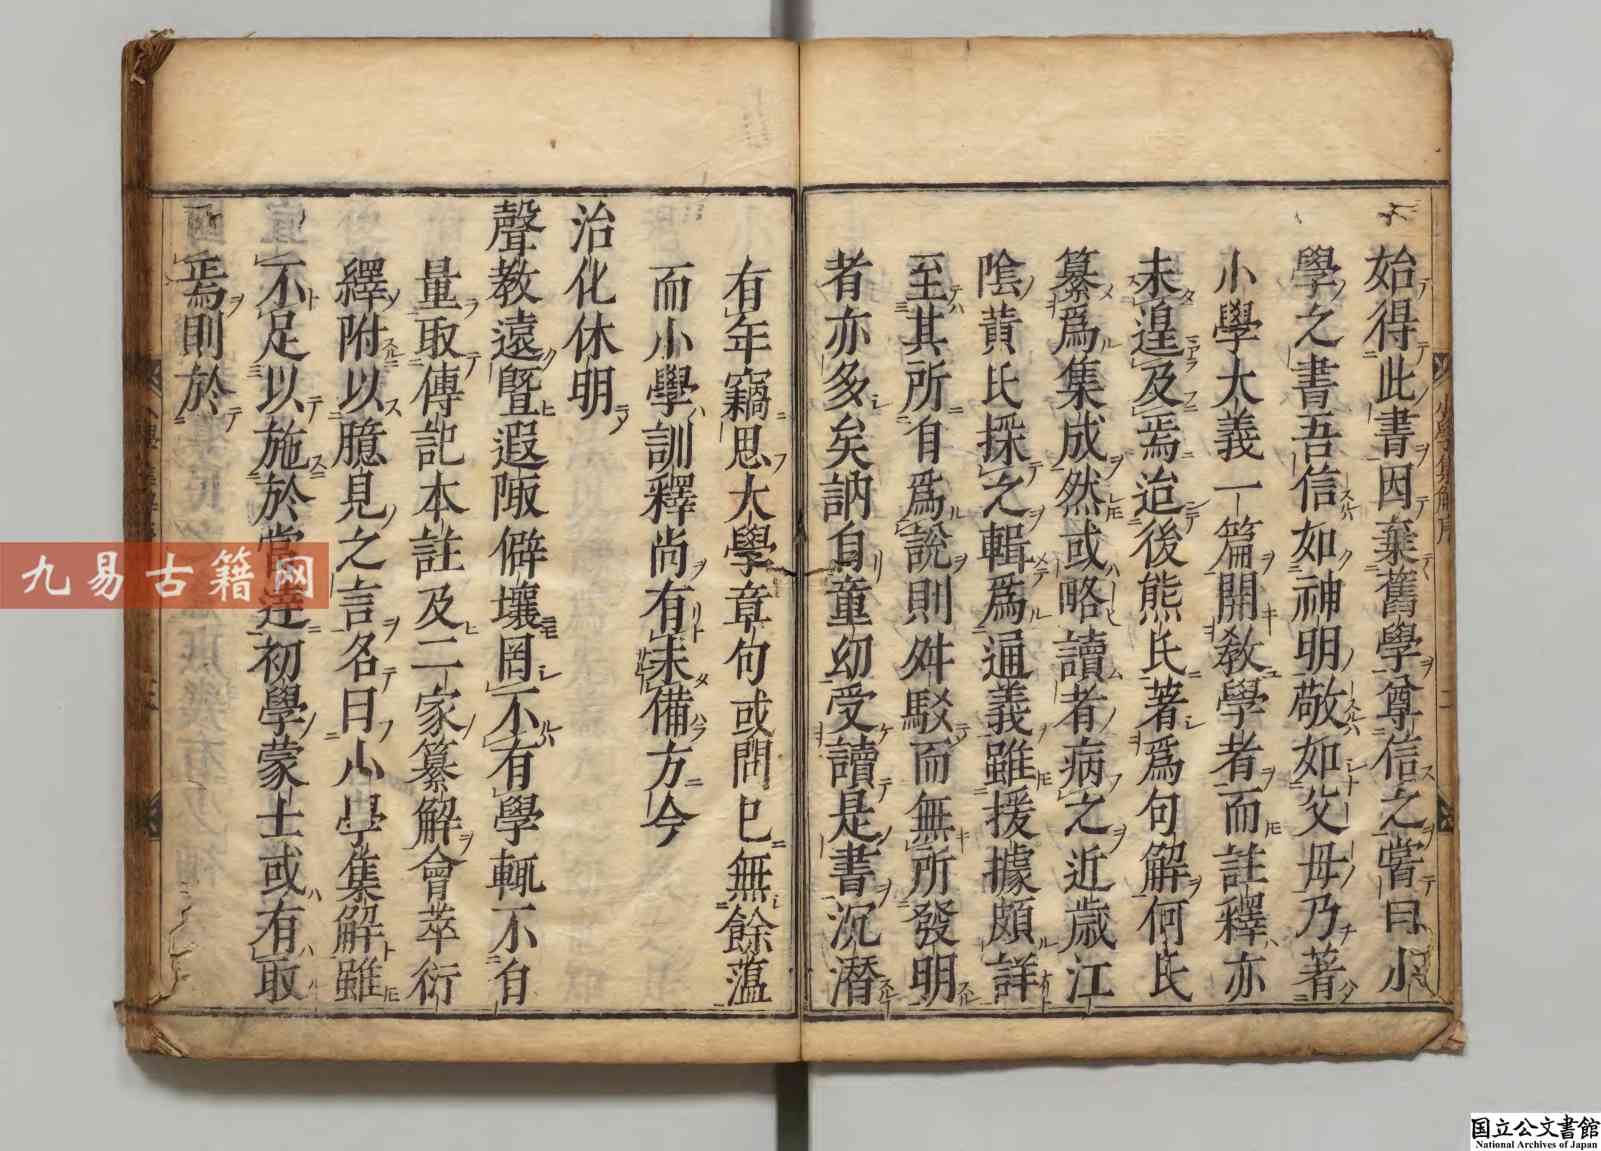 始得此書因棄舊學尊信之嘗曰小
學之書吾信如神明敬如父母乃著
小學大義一篇開教學者而註釋亦
未遑及焉迨後熊氏著爲句解何氏
纂爲集成然或略讀者病之近歲江
陰黃氏採之輯爲通義雖援據頗詳
至其所自爲說則舛駁而無所發明
者亦多矣訥自童幼受讀是書沉潛
有年竊思大學章句或問已無餘蘊
而小學訓釋尚有未備方今
治化休明
聲教遠曁遐陬僻壤罔不有學輒不自
量取傳記本註及二家纂解會萃衍
繹附以臆見之言名曰小學集解雖
不足以施於當達初學蒙士或有取
焉則於
小學集解序
二
九易古籍网
国立公文書館
National Archives of Japan